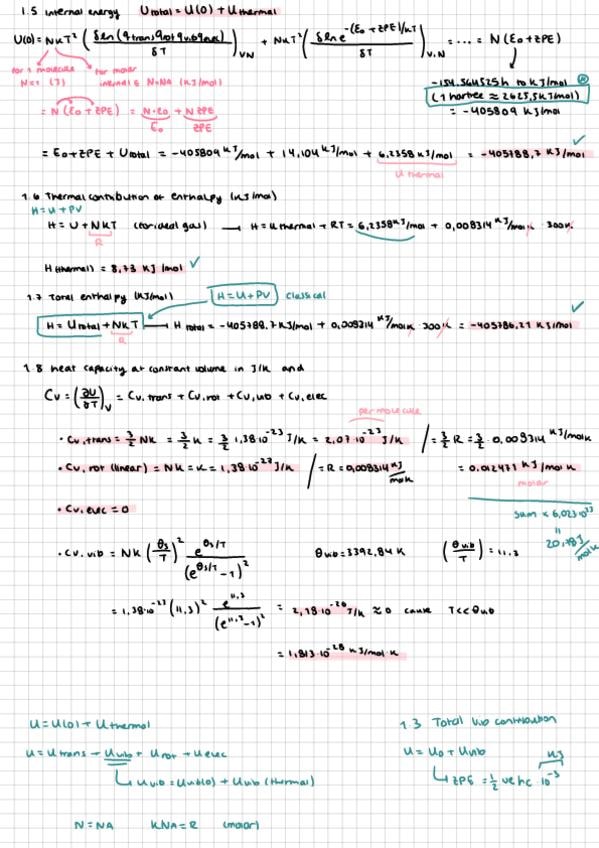 1.5 internal energy Utotal = U(0) + Uthermal
U(0) = NkT² (δ ln(qtrans qrot qvib qelec) / δT)V,N + NkT² (δ ln e^-(ε0 + ZPE)/kT / δT)V,N = ... = N(ε0 + ZPE)
for 1 molecule
N=1 (J)
for molar
internal E N=NA (kJ/mol)
-154.564525h to kJ/mol
(1 hartree ≈ 2625,5kJ/mol)
= -405809 kJ/mol
= N(ε0 + ZPE) = N·ε0 + N ZPE
E0 ZPE
= E0 + ZPE + Utotal = -405809 kJ/mol + 14,104 kJ/mol + 6,2358 kJ/mol = -405788,7 kJ/mol ✓
U thermal
1.6 Thermal contribution of enthalpy (kJ/mol)
H = U + PV
H = U + NkT (for ideal gas) → H = Uthermal + RT = 6,2358 kJ/mol + 0,008314 kJ/mol·K · 300K
R
H(thermal) = 8,73 kJ/mol ✓
1.7 Total enthalpy (kJ/mol) H = U + PV classical
H = Utotal + NkT → Htotal = -405788.7 kJ/mol + 0,008314 kJ/molK · 300K = -405786.21 kJ/mol ✓
R
1.8 heat capacity at constant volume in J/K and
Cv = (∂U/∂T)V = Cv,trans + Cv,rot + Cv,vib + Cv,elec
per molecule
• Cv,trans = 3/2 Nk = 3/2 k = 3/2 1,38·10^-23 J/K = 2,07·10^-23 J/K / = 3/2 R = 3/2 · 0,008314 kJ/molK
• Cv,rot (linear) = Nk = k = 1,38·10^-23 J/K / = R = 0,008314 kJ/molK = 0.012471 kJ/mol K
molar
• Cv,elec = 0
sum × 6,023·10^23
=
20,78 J/mol K
• Cv,vib = Nk (θs/T)² e^θs/T / (e^θs/T - 1)² θvib = 3392,84 K (θvib/T) = 11.3
= 1,38·10^-23 (11,3)² e^11,3 / (e^11,3 - 1)² = 2,18·10^-26 J/K ≈ 0 cause T<<θvib
= 1,813·10^-28 kJ/mol·K
U = U(0) + Uthermal
U = Utrans + Uvib + Urot + Uelec
↳ Uvib = Uvib(0) + Uvib (thermal)
N = NA kNA = R (molar)
1.3 Total vib contribution
U = U0 + Uvib
kJ
↳ ZPE = 1/2 νe h c · 10^-3